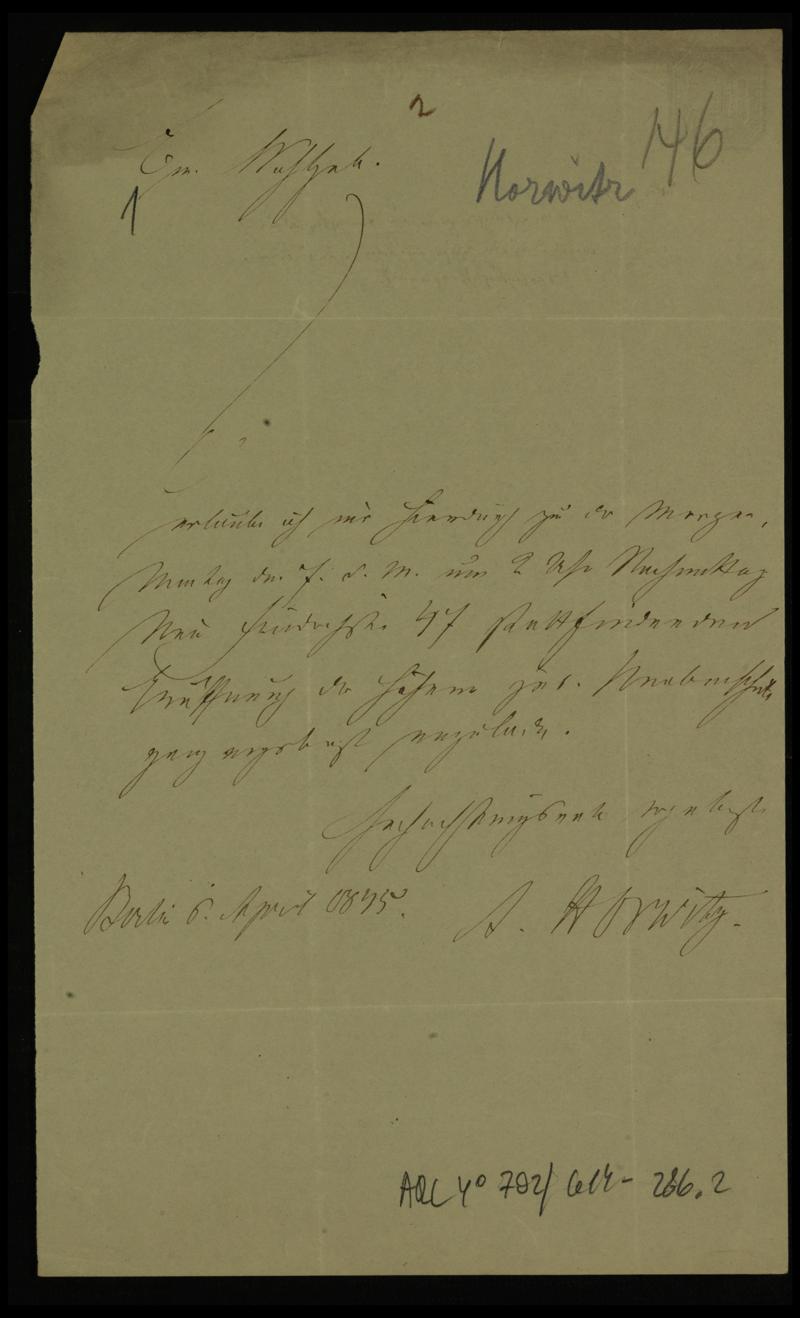 2
146
Horwitz
Ew. Wohlgeb.
1
erlaube ich mir hierdurch zu der Morgen,
Montag den 7. d. M. um 2 Uhr Nachmittag
Neu Friedrichstr. 47 stattfindenden
Eröffnung der höhern jüd. Knabenschule
ganz ergebenst einzuladen.
Hochachtungsvoll ergebenst
Berlin 6. April 1875.
A. Horwitz.